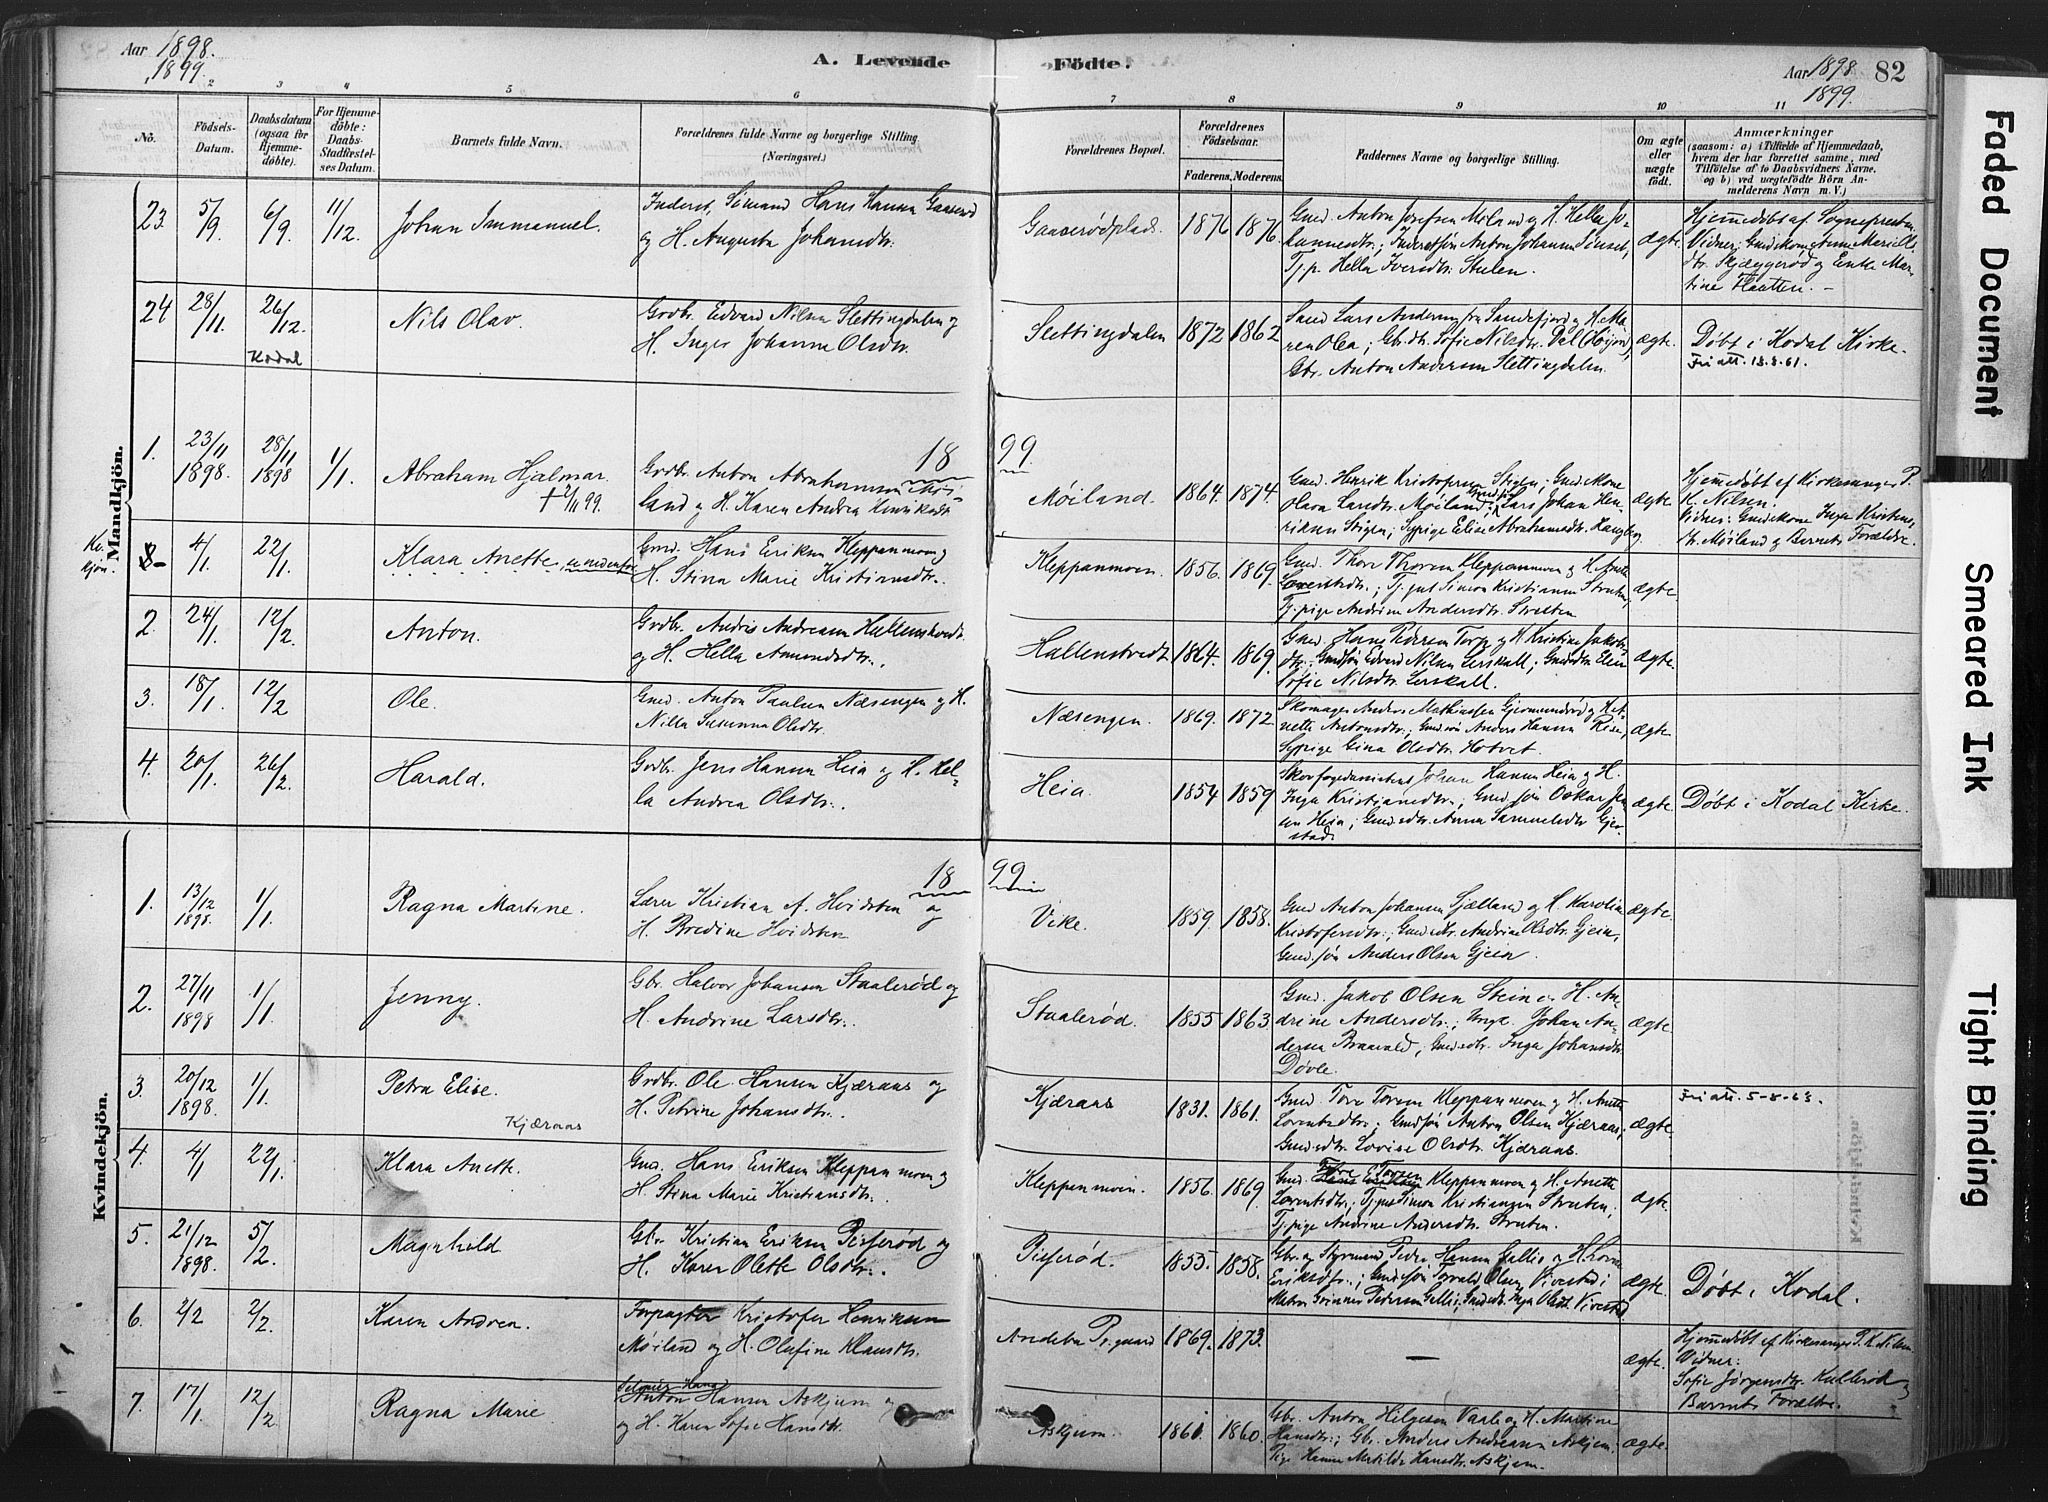 Aar 1898.
1899.
A. Levende Fødte.
Aar 1898
1899.
82
2 3 4 5 6 7 8 9 10 11
No.
Fødsels-Datum.
Daabsdatum (ogsaa for Hjemmedøbte).
For Hjemmedøbte: Daabs-Stadfæstelses Datum.
Barnets fulde Navn.
Forældrenes fulde Navne og borgerlige Stilling.
(Næringsvei.)
Forældrenes Bopæl.
Forældrenes Fødselsaar.
Faderens. Moderens.
Faddernes Navne og borgerlige Stilling.
Om ægte eller uægte født.
Anmærkninger
(saasom: a) i Tilfælde af Hjemmedaab, hvem der har forrettet samme, med Tilføielse af to Daabsvidners Navne, og b) ved uægtefødte Børn Anmelderens Navn m. V.)
23. 5/9 6/9 11/12 Johan Immanuel.
Inderst, Sømand Hans Hansen Gaaserød
og H. Augusta Johansdtr.
Gaaserødplads. 1876 1876.
Gmd. Anton Josefsen Møland og H. Hella Jo-
hannesdtr.; Anton Johansen
Tj.p. Hella Iversdtr. Stulen.
ægte.
Hjemmedøbt af Sognepresten.
Vidner: Gmdskone Anne
dtr. Skjæggerød og Enke Mar-
tine Haatten.
24 28/11 26/12. Kodal
Nils Olav.
Grdbr. Edvard Nilsen Slettingdalen og
H. Inger Johanne Olsdtr.
Slettingdalen 1872 1862
Lars Andersen fra Sandefjord og H. Ma-
ren Olea; Gbrdtr. Sofie Nilsdtr. Dal
Gbr. Anton Andersen Slettingdalen.
ægte.
Døbt i Kodal Kirke.
Fri att. 18.8.61.
Mandkjön.
18 99
1. 23/11 1898. 28/11 1898 1/1
Abraham Hjalmar.
Grdbr. Anton Abrahamsen Møi-
land og H. Karen Andrea Henriksdtr.
Møiland. 1864. 1874.
Gmd. Henrik Kristofersen Stigen; Gmdskone
Olava Larsdtr. Møiland; Lars Johan Hen-
riksen Stigen; Sypige Elise Abrahamsdtr. Haugberg
ægte
Hjemmedøbt af Kirkesanger P.
K. Nilsen.
Vidner: Gmdskone Inga Kristens-
dtr. Møiland og Barnets Forældre.
Kv. kjön.
4/1 22/1
Klara Anette, se nedenfor
Gmd. Hans Eriksen Kleppanmoen og
H. Stina Marie Kristiansdtr.
Kleppanmoen. 1856. 1869.
Gmd. Thore Thoresen Kleppanmoen og H. Anette
Lorentsdtr.; Tj.gut Simon Kristiansen Struten;
Tj.pige Andrine Andersdtr. Struten
ægte
2. 24/1. 12/2
Anton.
Grdbr. Andris Andreasen Hallenstvedt
og H. Hella Amundsdtr.
Hallenstvedt 1864. 1869.
Gmd. Hans Pedersen Torp og H. Kristine Jakobs
dtr.; Gmdsøn Edvard Nilsen Lerskall; Gmdsdtr. Elen
Sofie Nilsdtr. Lerskall.
ægte.
3. 18/1. 12/2
Ole.
Gmd. Anton Paulsen Næsengen og H.
Nilla Susanna Olsdtr.
Næsengen. 1869. 1872.
Skomager Anders Mathiassen Gjermundrød og H. A-
nette Antonsdtr.; Gmdsøn Anders Hansen Rise,
Sypige Gina Olsdtr. Hotvet.
ægte
4. 20/1. 26/2.
Harald.
Grdbr. Jens Hansen Heia og H. Hel-
la Andrea Olsdtr.
Heia. 1854 1859
Skovfogedassistent Johan Hansen Heia og H.
Inga Kristiansdtr.; Gmdsøn Oskar Jen-
sen Heia; Gmdsdtr. Anna Samuelsdtr. Gjer-
stad.
ægte
Døbt i Kodal Kirke.
Kvindekjön.
18 99
1. 13/12 1898. 1/1.
Ragna Martine.
Lærer Kristian A. Hvidsten og
H. Bredine Hvidsten
Vike. 1859. 1858.
Gmd Anton Johansen Sjælland og H. Karoline
Kristofersdtr.; Gmdsdtr. Andrine Olsdtr. Gjein,
Gmdsøn Anders Olsen Gjein.
ægte
2. 27/11 1898 1/1
Jenny.
Gbr. Halvor Johansen Staalerød og
H. Andrine Larsdtr.
Staalerød. 1855 1863.
Gmd. Jakob Olsen Stein og H. An-
drine Andersdtr.; Ungk. Johan An-
dersen Braavald, Gmdsdtr. Inga Johansdtr.
Døvle.
ægte
3. 20/12 1898. 1/1.
Petra Elise. Kjæraas
Grdbr. Ole Hansen Kjæraas og
H. Petrine Johansdtr.
Kjæraas 1831. 1861.
Gmd. Tore Toresen Kleppanmoen og H. Anette
Lorentsdtr.; Gmdsøn Anton Olsen Kjæraas;
Gmdsdtr. Lovise Olsdtr. Kjæraas.
ægte.
Fri att. 5-8-63.
4. 4/1 22/1.
Klara Anette.
Gmd. Hans Eriksen Kleppanmoen og
H. Stina Marie Kristiansdtr.
Kleppanmoen. 1856. 1869.
Gmd. Tore Toresen Kleppanmoen og H. Anette
Lorentsdtr.; Tj.gut Simon Kristiansen Struten;
Tj.pige Andrine Andersdtr. Struten.
ægte
5. 21/12 1898. 5/2.
Magnhild
Gbr. Kristian Eriksen Pisserød og
H. Karen Olette Olsdtr.
Pisserød. 1855. 1858.
Gbr. og Styrmand Peder Hansen Gallis og H.
Eriksdtr.; Gmdsøn Torvald Olsen Vivestad;
Matros Grinnes Pedersen Gallis; Gmdsdtr. Inga Olsdt. Vivestad
ægte.
Døbt i Kodal.
6. 2/2 2/2
Karen Andrea.
Forpagter Kristofer Henriksen
Møiland og H. Olufine Klausdtr.
Andebu Pr.gaard 1869. 1873.
—
ægte.
Hjemmedøbt af Kirkesanger P. K. Nilsen
Vidner:
Sofie Jørgensdtr. Kullerød og
Barnets Forældre.
7. 17/1 12/2
Ragna Marie
Anton Hansen Askjum og
og H. Karen Sofie Hansdtr.
Askjum. 1861. 1860.
Gbr. Anton Helgesen Vaale og H. Martine
Hansdtr.; Gbr. Anders Andreasen Askjem;
Pige Hanna Matilde Hansdtr. Askjem.
ægte.
Faded Document
Smeared Ink
Tight Binding